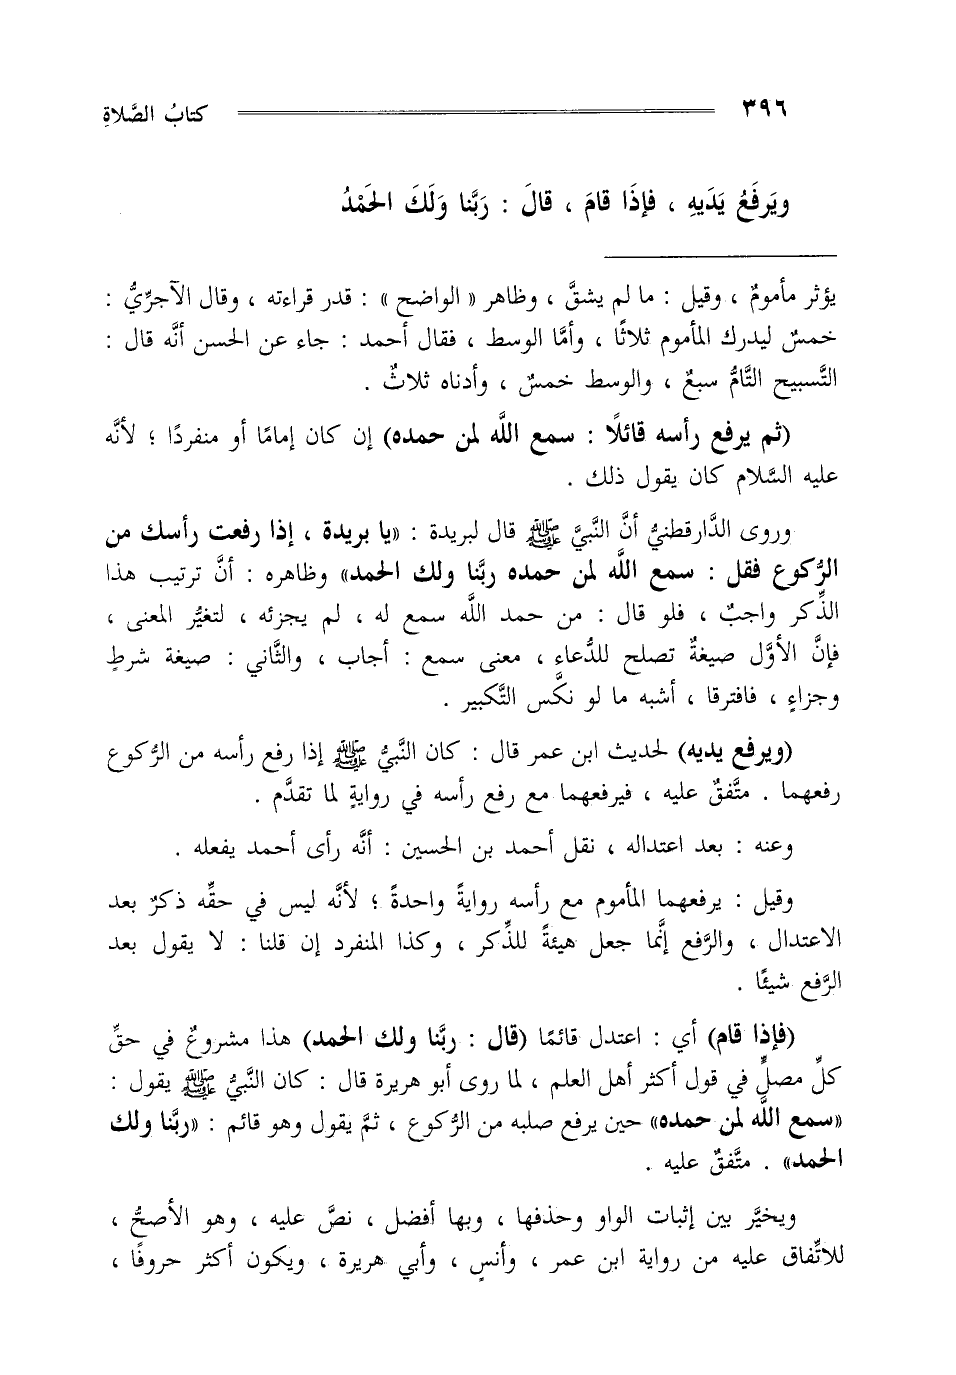 ٣٩٦ كتابُ الصَّلاةِ
ويَرفَعُ يَدَيهِ ، فإذَا قامَ ، قالَ : رَبَّنا وَلَكَ الحَمْدُ
يؤثر مأمومٌ ، وقيل : ما لم يشقَّ ، وظاهر « الواضح » : قدر قراءته ، وقال الآجرِّيُّ :
خمسٌ ليدرك المأموم ثلاثًا ، وأمَّا الوسط ، فقال أحمد : جاء عن الحسن أنَّه قال :
التَّسبيح التَّامُّ سبعٌ ، والوسط خمسٌ ، وأدناه ثلاثٌ .
(ثم يرفع رأسه قائلًا : سمع اللَّه لمن حمده) إن كان إمامًا أو منفردًا ؛ لأنَّه
عليه السَّلام كان يقول ذلك .
وروى الدَّارقطنيُّ أنَّ النَّبيَّ ﷺ قال لبريدة : «يا بريدة ، إذا رفعت رأسك من
الرُّكوع فقل : سمع اللَّه لمن حمده ربَّنا ولك الحمد» وظاهره : أنَّ ترتيب هذا
الذِّكر واجبٌ ، فلو قال : من حمد اللَّه سمع له ، لم يجزئه ، لتغيُّر المعنى ،
فإنَّ الأوَّل صيغةٌ تصلح للدُّعاء ، معنى سمع : أجاب ، والثَّاني : صيغة شرطٍ
وجزاءٍ ، فافترقا ، أشبه ما لو نكَّس التَّكبير .
(ويرفع يديه) لحديث ابن عمر قال : كان النَّبيُّ ﷺ إذا رفع رأسه من الرُّكوع
رفعهما . متَّفقٌ عليه ، فيرفعهما مع رفع رأسه في روايةٍ لما تقدَّم .
وعنه : بعد اعتداله ، نقل أحمد بن الحسين : أنَّه رأى أحمد يفعله .
وقيل : يرفعهما المأموم مع رأسه روايةً واحدةً ؛ لأنَّه ليس في حقِّه ذكرٌ بعد
الاعتدال ، والرَّفع إنَّما جعل هيئةً للذِّكر ، وكذا المنفرد إن قلنا : لا يقول بعد
الرَّفع شيئًا .
(فإذا قام) أي : اعتدل قائمًا (قال : ربَّنا ولك الحمد) هذا مشروعٌ في حقِّ
كلِّ مصلٍّ في قول أكثر أهل العلم ، لما روى أبو هريرة قال : كان النَّبيُّ ﷺ يقول :
«سمع اللَّه لمن حمده» حين يرفع صلبه من الرُّكوع ، ثمَّ يقول وهو قائم : «ربَّنا ولك
الحمد» . متَّفقٌ عليه .
ويخيَّر بين إثبات الواو وحذفها ، وبها أفضل ، نصَّ عليه ، وهو الأصحُّ ،
للاتِّفاق عليه من رواية ابن عمر ، وأنسٍ ، وأبي هريرة ، ويكون أكثر حروفًا ،